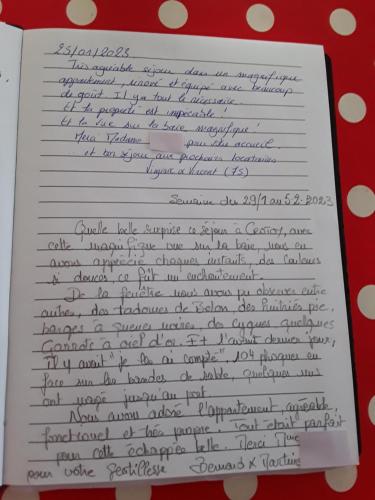 25/01/2023
Très agréable séjour dans un magnifique
appartement, rénové et équipé avec beaucoup
de goût. Il y a tout le nécessaire.
Et la propreté est impeccable!
Et la vue sur la baie magnifique!
Merci Madame pour votre accueil
et bon séjour aux prochains locataires.
Vincent (75)
Semaine du 29/1 au 5.2.2023
Quelle belle surprise ce séjour à avec
cette magnifique vue sur la baie, nous en
avons apprécié chaques instants, des couleurs
si douces, ce fût un enchantement.
De la fenêtre nous avons pu observer entre
autres, des tadornes de Belon, des huitriés pie,
barges à queues noires, des cygnes, quelques
Garrots à œil d'or. Et l'avant dernier jour,
Il y avait "je les ai compté" 104 phoques en
face sur les bandes de sable, quelques uns
ont nagé jusqu'au port.
Nous avons adoré l'appartement, agréable,
fonctionnel et très propre. Tout était parfait
pour cette échappée belle. Merci Mme
pour votre gentillesse Bernard &